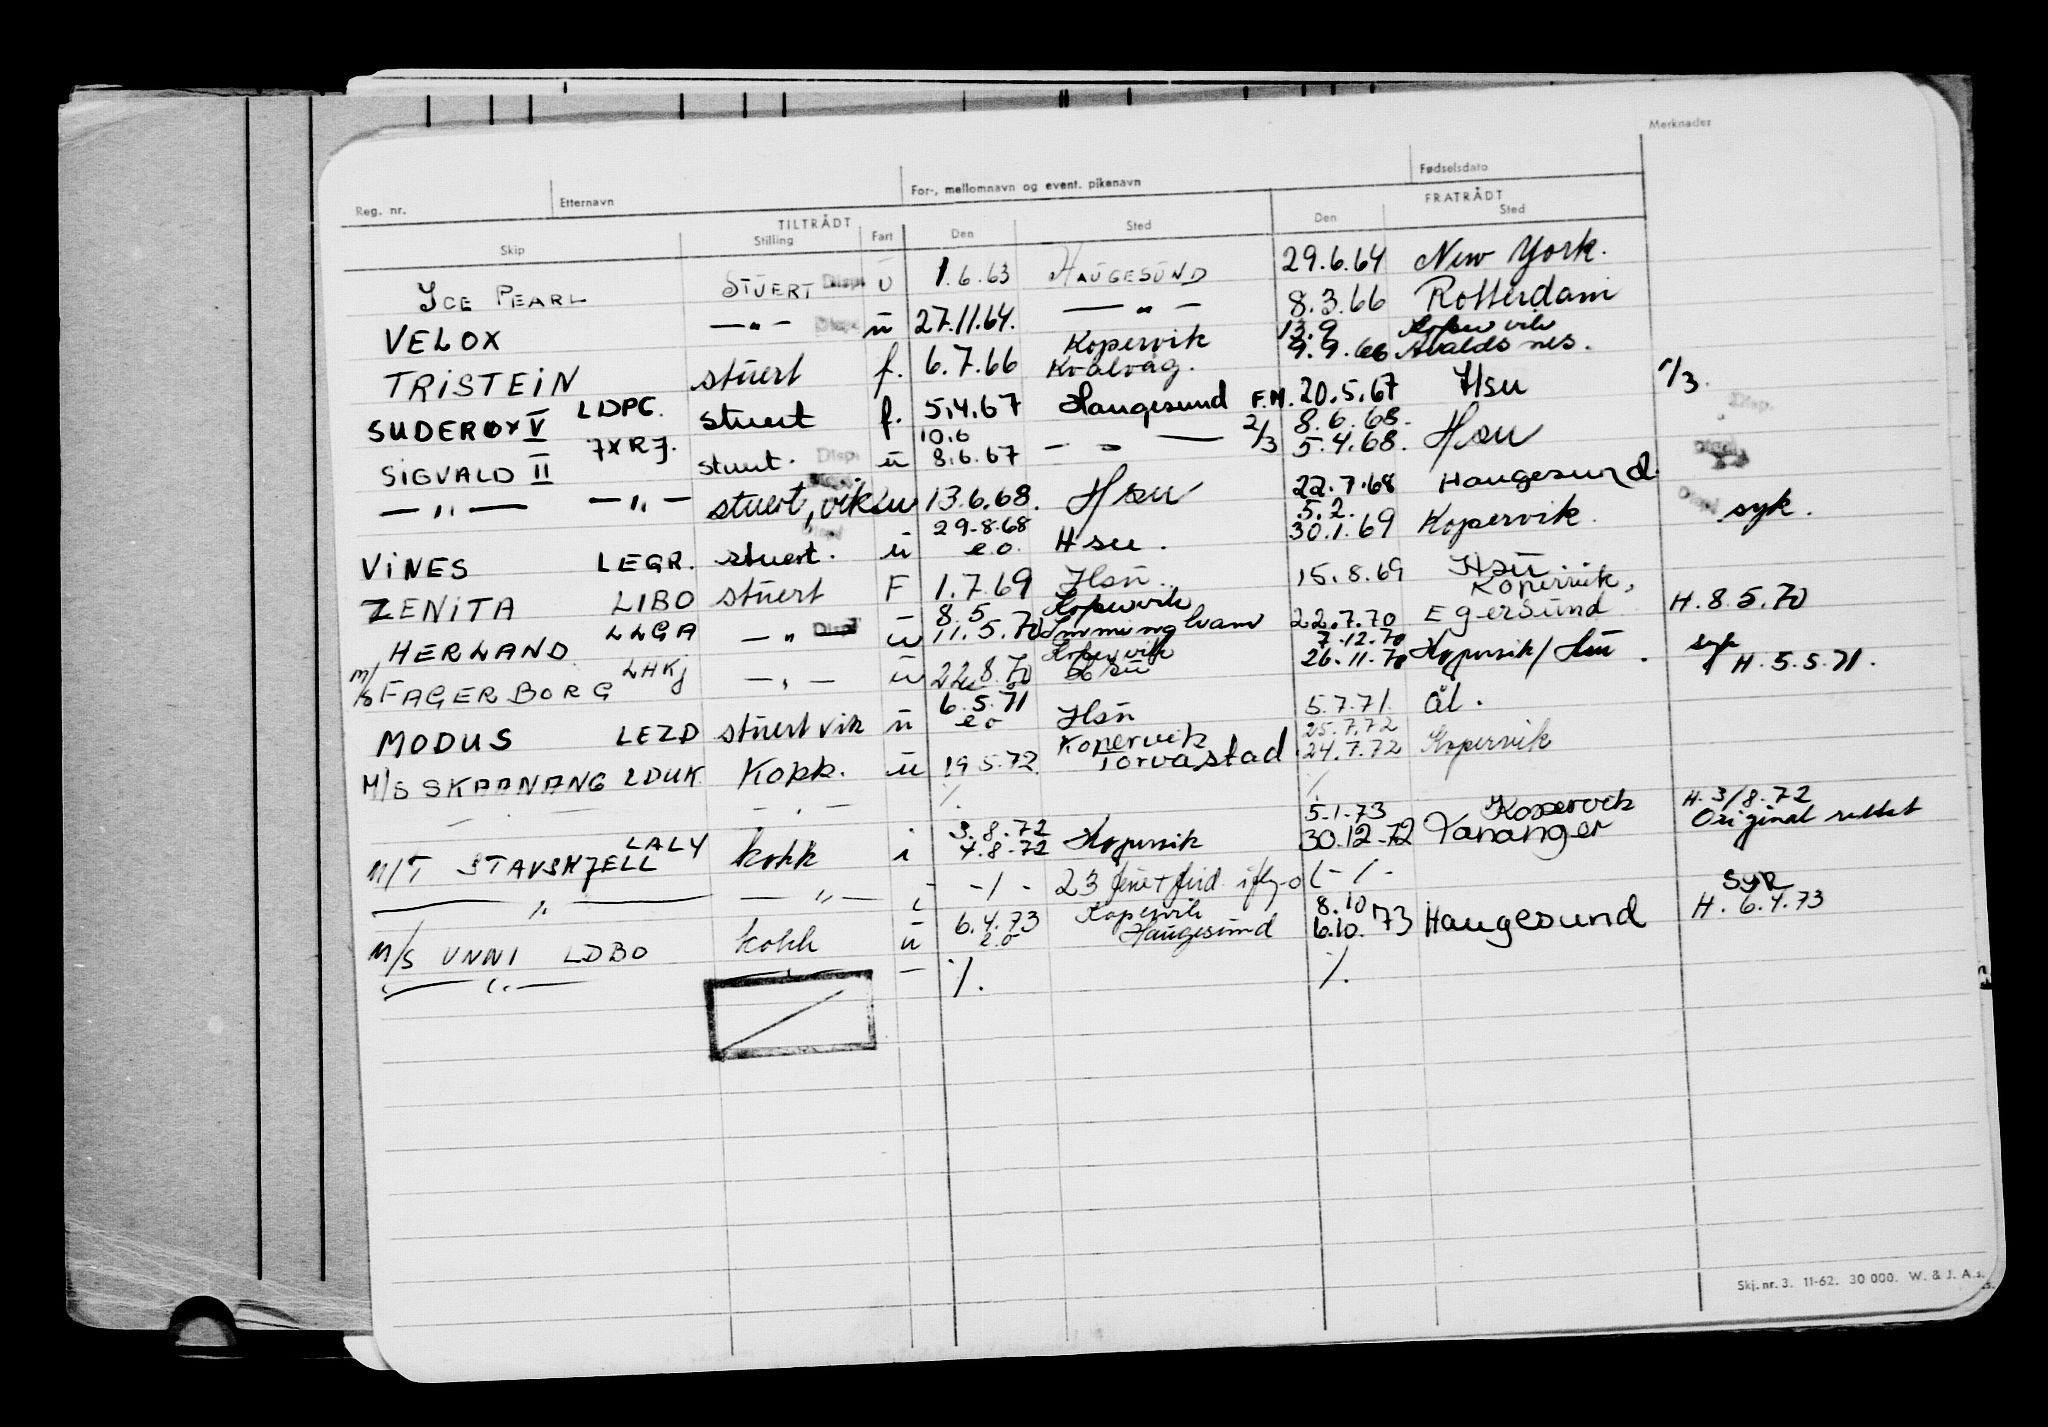 Merknader
Reg. nr. Etternavn For-, mellomnavn og event. pikenavn Fødselsdato
TILTRÅDT FRATRÅDT
Skip Stilling Fart Den Sted Den Sted
ICE PEARL STUERT Disp. U 1.6.63 HAUGESUND 29.6.64 New York.
VELOX — " — Disp. u 27.11.64. — " — 8.3.66 Rotterdam
Kopervik 13.9 Kopervik
TRISTEIN stuert f. 6.7.66 Kvalvåg. 9.9.66 Avaldsnes.
SUDERØY V LDPG. stuert f. 5.4.67 Haugesund F.M. 20.5.67 Hsu 1/3.
10.6 2/3 8.6.68. Disp.
SIGVALD II JXRJ. stuert. Disp. u 8.6.67 — " — 5.4.68. Hsu
— " — — " — stuert, vik u 13.6.68. Hsu 22.7.68 Haugesund. Disp.
29.8.68 5.2.
VINES LEGR. stuert. Disp u e.o. Hsu. 30.1.69 Kopervik. Disp syk.
ZENITA LIBO stuert F 1.7.69 Hsu. 15.8.69 Hsu.
8.5 Kopervik Kopervik,
HERLAND LLGA — " — Disp u 11.5.70 Immingham 22.7.70 Egersund H. 8.5.70
Kopervik 7.12.70 syk
M/S FAGERBORG LHKJ — " — u 22.8.70 Hsu 26.11.70 Kopervik/Hsu. H. 5.5.71.
6.5.71
MODUS LEZD stuert vik u e.o Hsu 5.7.71. Ål.
Kopervik 25.7.72
M/S SKAANANG LDUK Kokk. u 19.5.72. Torvastad. 24.7.72 Kopervik
— — " — %. %
LALY 3.8.72 5.1.73 Kopervik H. 3/8.72
M/T STAVSKJELL kokk i 4.8.72 Kopervik 30.12.72 Tananger Original rettet
— " — — " — i -/- 23 -/-
Kopervik 8.10 SYK
M/S UNNI LDBO kokk u 6.4.73 e.o Haugesund 6.10.73 Haugesund H. 6.4.73
— " — — " — — %. %.
Skj. nr. 3. 11-62. 30 000. W. & J. A.s.